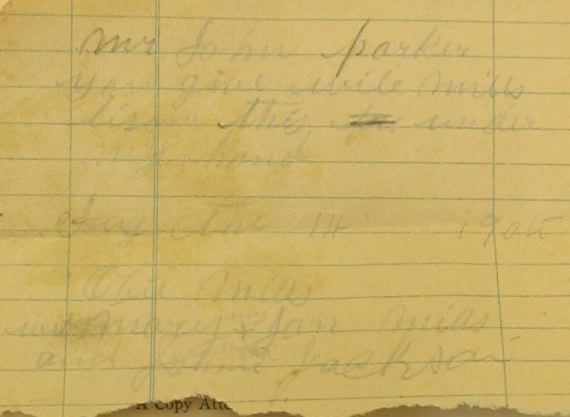 mr John parker
you give wile mills
lisom this under
my hand
Aug the 14 1905
Obe mills
wit mary Jan mills
and Jackson
A Copy Atte